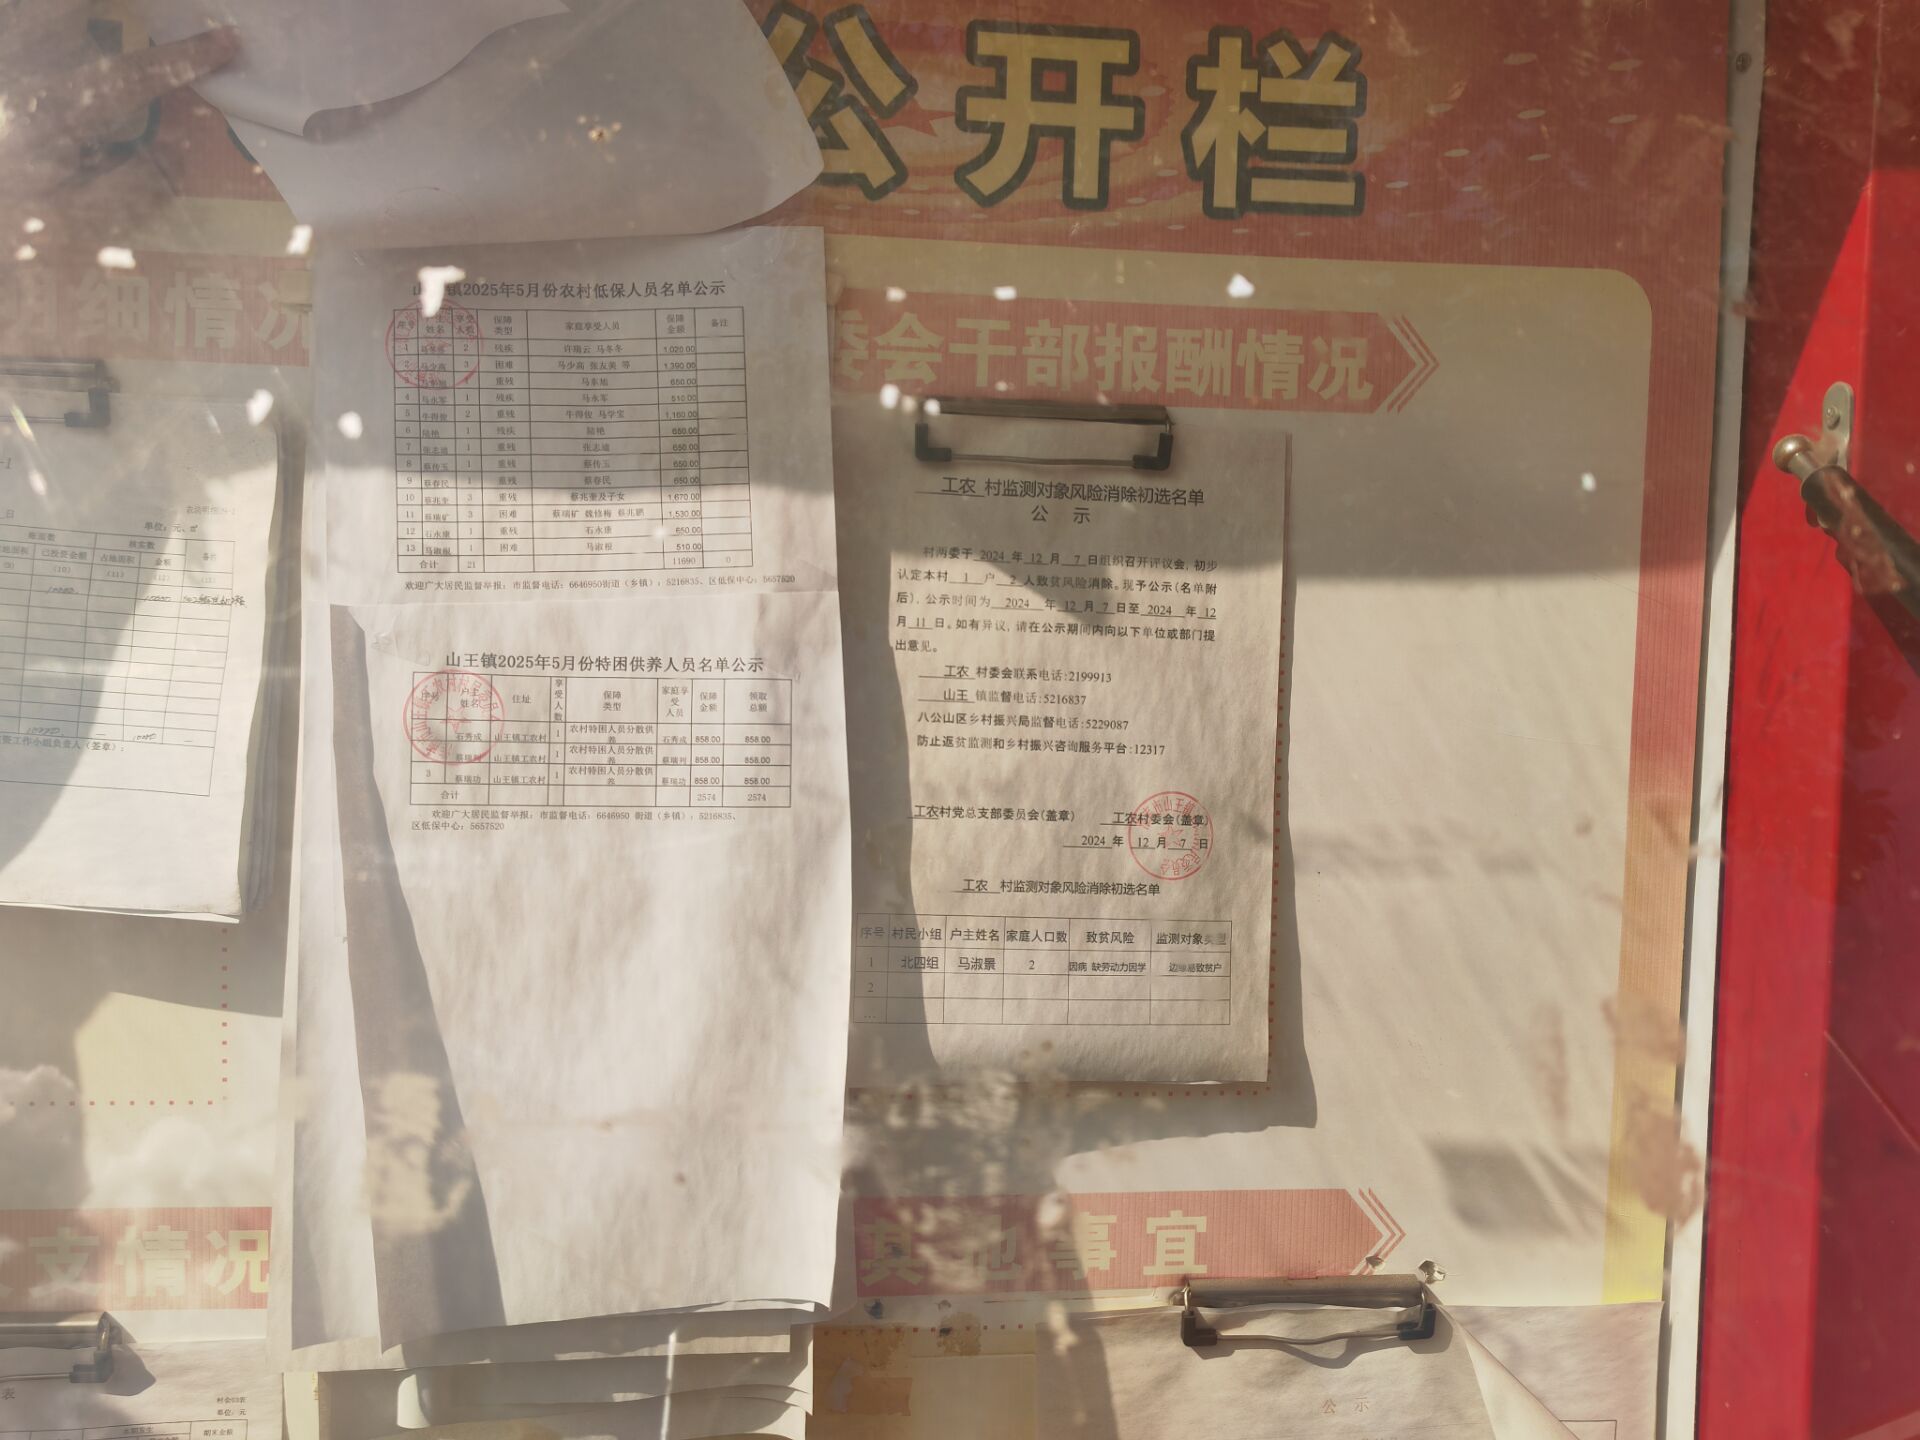 公开栏
细情况
山王镇2025年5月份农村低保人员名单公示
序号 户主姓名 享受人数 保障类型 家庭享受人员 保障金额 备注
1 2 残疾 许瑞云 马冬冬 1,020.00
2 马少高 3 困难 马少高 张友美 等 1,390.00
3 1 重残 马东旭 650.00
4 马永军 1 残疾 马永军 510.00
5 牛得俊 2 重残 牛得俊 马学宝 1,160.00
6 陆艳 1 残疾 陆艳 650.00
7 张志迪 1 重残 张志迪 650.00
8 蔡传玉 1 重残 蔡传玉 650.00
9 蔡春民 1 重残 蔡春民 650.00
10 蔡兆奎 3 重残 蔡兆奎及子女 1,670.00
11 蔡瑞矿 3 困难 蔡瑞矿 魏修梅 蔡兆鹏 1,530.00
12 石永康 1 重残 石永康 650.00
13 马淑根 1 困难 马淑根 510.00
合计 21 11690 0
欢迎广大居民监督举报：市监督电话：6646950街道（乡镇）：5216835、区低保中心：5657520
山王镇2025年5月份特困供养人员名单公示
序号 户主姓名 住址 享受人数 保障类型 家庭享受人员 保障金额 领取总额
石秀成 山王镇工农村 1 农村特困人员分散供养 石秀成 858.00 858.00
蔡瑞列 山王镇工农村 1 农村特困人员分散供养 蔡瑞列 858.00 858.00
3 蔡瑞功 山王镇工农村 1 农村特困人员分散供养 蔡瑞功 858.00 858.00
合计 2574 2574
欢迎广大居民监督举报：市监督电话：6646950 街道（乡镇）：5216835、
区低保中心：5657520
委会干部报酬情况
工农 村监测对象风险消除初选名单
公 示
村两委于 2024 年 12 月 7 日组织召开评议会，初步
认定本村 1 户 2 人致贫风险消除。现予公示（名单附
后），公示时间为 2024 年 12 月 7 日至 2024 年 12
月 11 日。如有异议，请在公示期间内向以下单位或部门提
出意见。
工农 村委会联系电话:2199913
山王 镇监督电话:5216837
八公山区乡村振兴局监督电话:5229087
防止返贫监测和乡村振兴咨询服务平台:12317
工农村党总支部委员会(盖章) 工农村委会(盖章)
2024 年 12 月 7 日
工农 村监测对象风险消除初选名单
序号 村民小组 户主姓名 家庭人口数 致贫风险 监测对象类型
1 北四组 马淑景 2 因病 缺劳动力因学 边缘易致贫户
2
…
单位：元、㎡
账面数 核实数 备注
占地面积 已投资金额 占地面积 金额
(9) (10) (11) (12) (13)
资工作小组负责人（签章）：
支情况
其他事宜
村会03表
单位：元
公 示